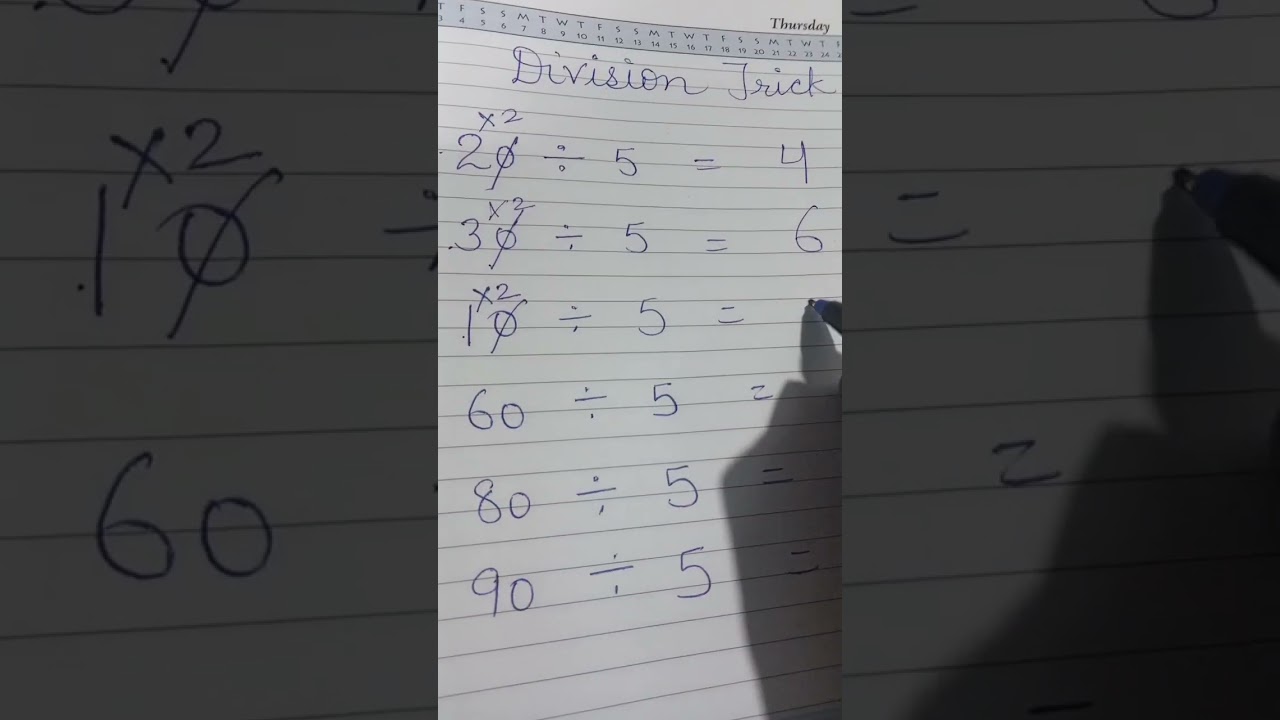 Thursday
T F S S M T W T F S S M T W T F S S M T W T F
3 4 5 6 7 8 9 10 11 12 13 14 15 16 17 18 19 20 21 22 23 24
Division Trick
×2
20 ÷ 5 = 4
×2
30 ÷ 5 = 6
×2
10 ÷ 5 =
60 ÷ 5 =
80 ÷ 5 =
90 ÷ 5 =